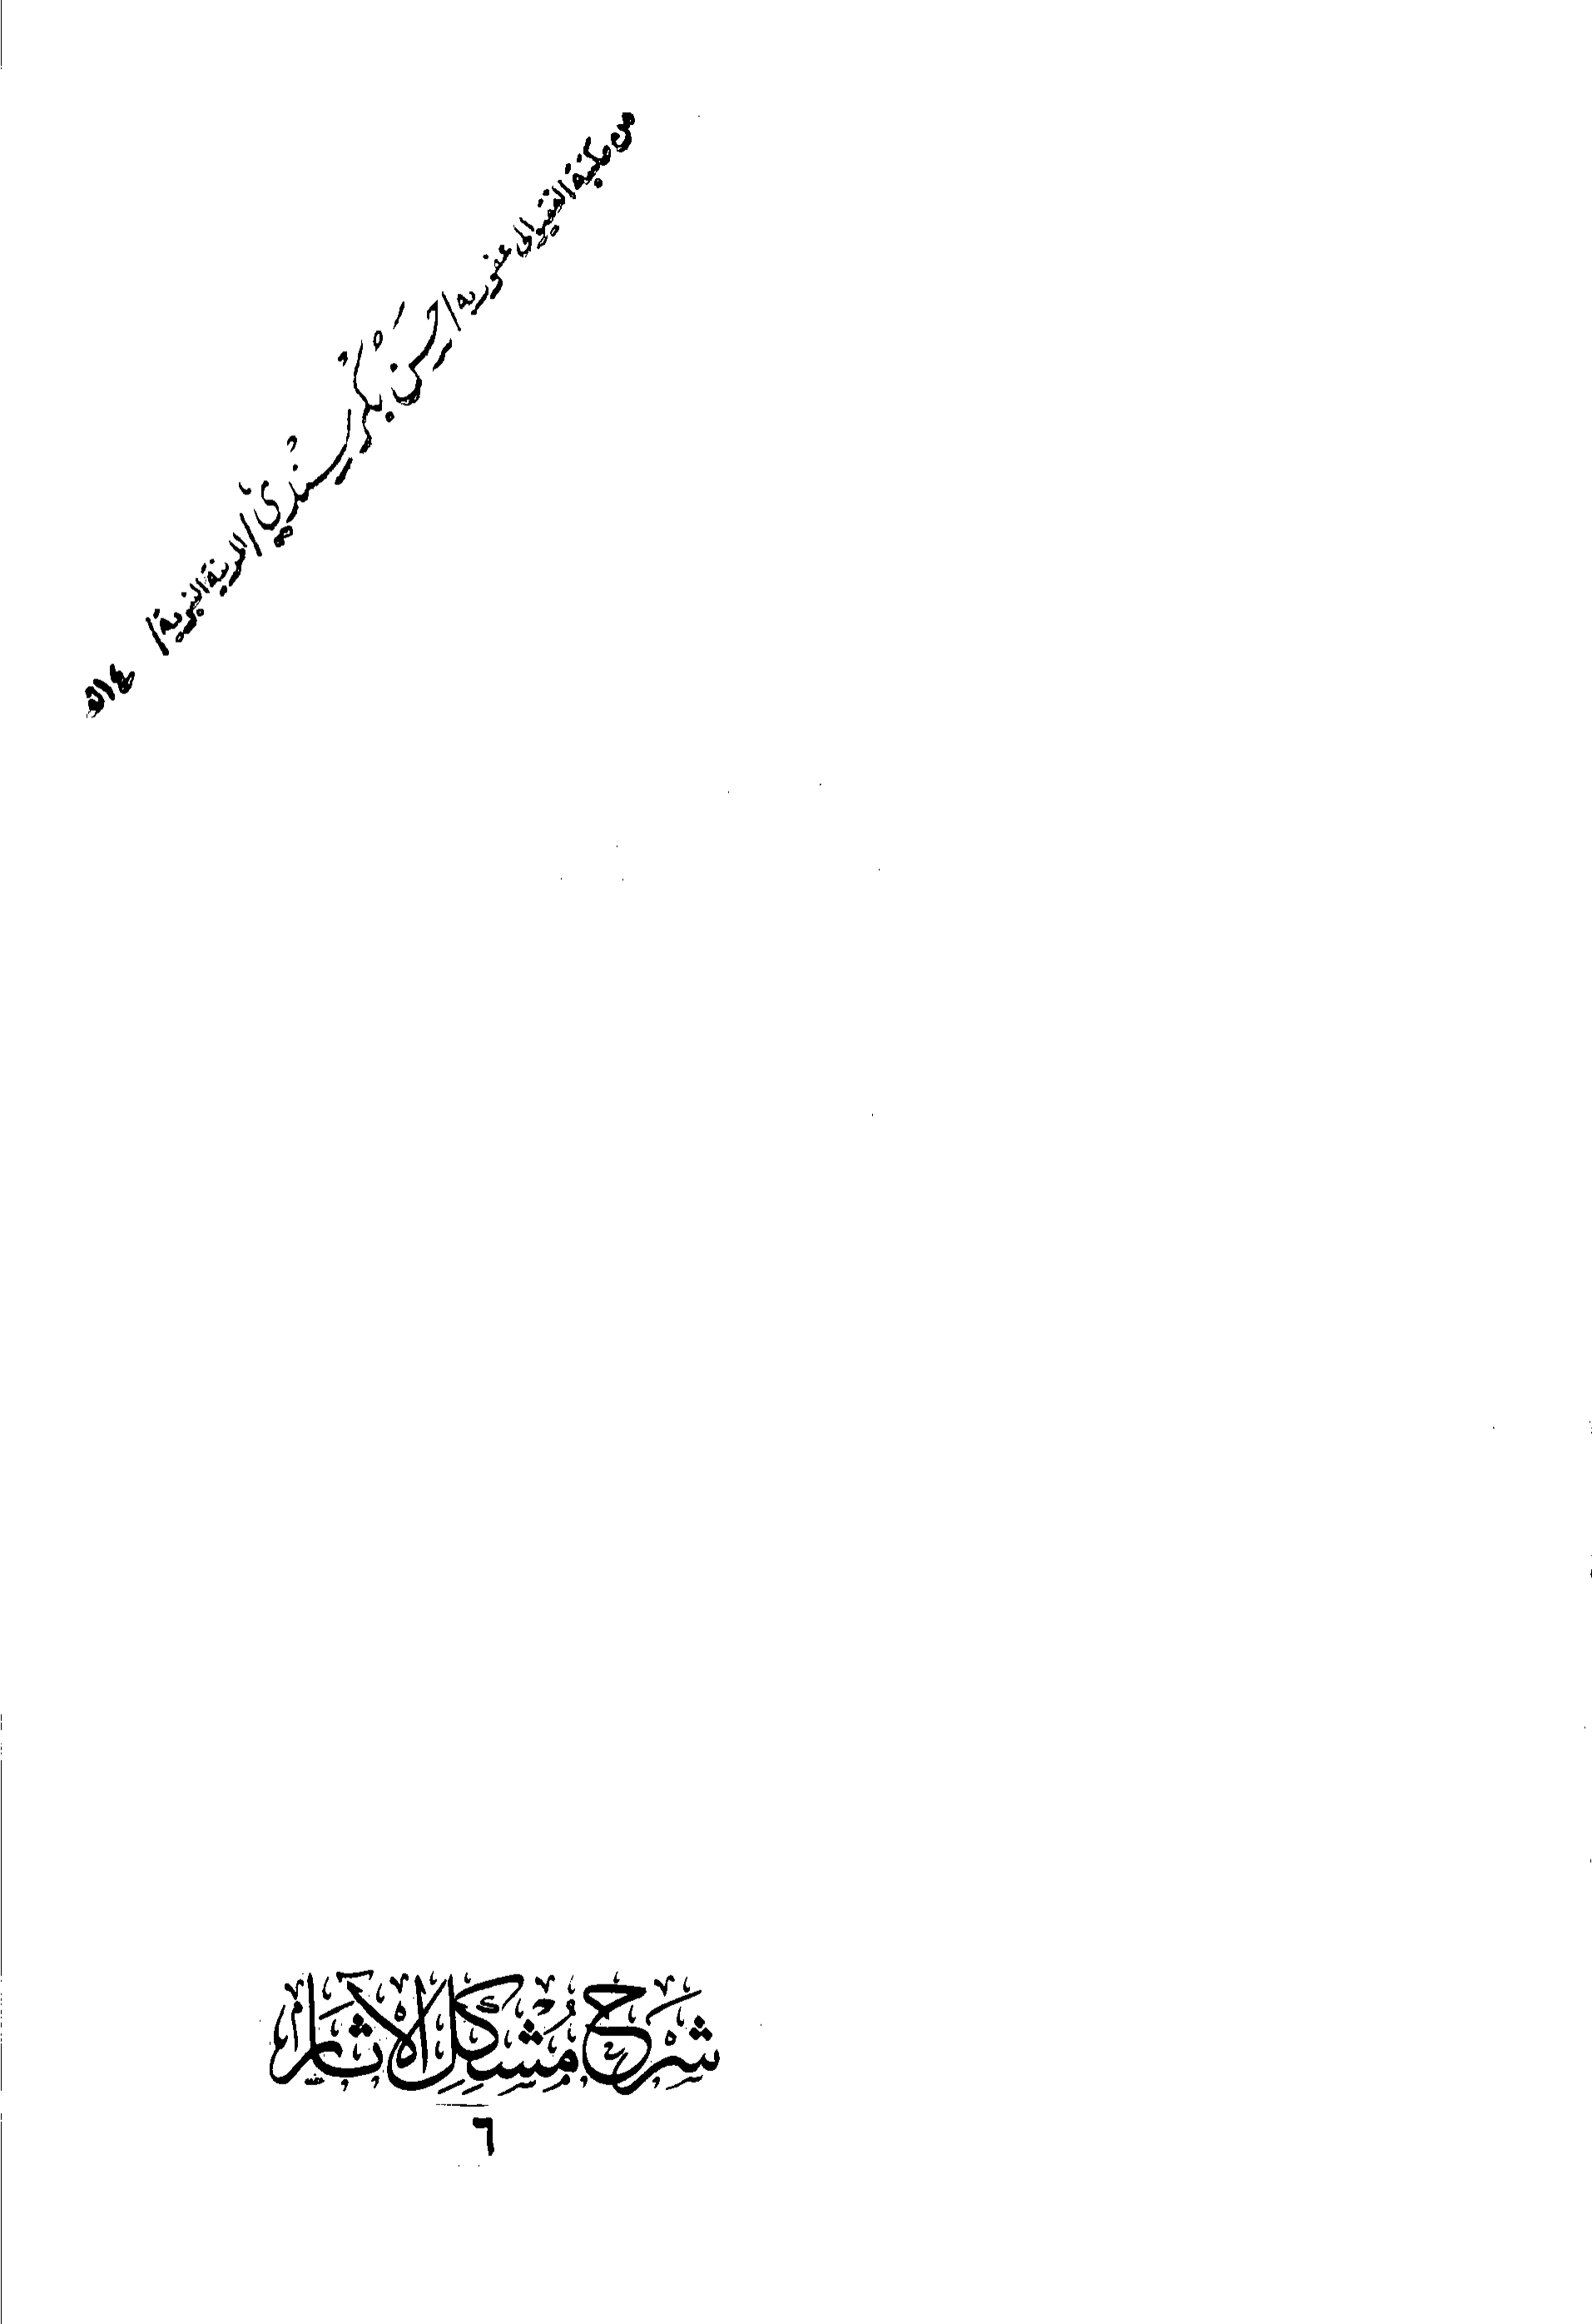 من مكتبة الفقير إلى عفو ربه / حسن بكر سندي / المدينة النبوية /
شرح مشكل الآثار
٦